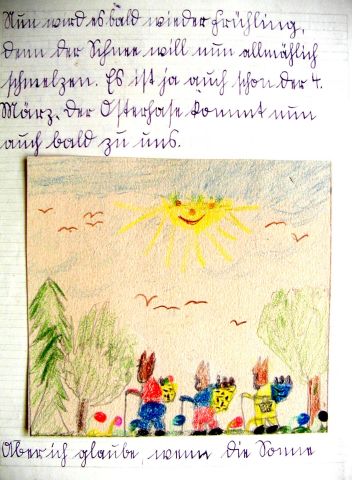 Nun wird es bald wieder Frühling,
denn der Schnee will nun allmählich
schmelzen. Es ist ja auch schon der 4.
März. Der Osterhase kommt nun
auch bald zu uns.
Aber ich glaube, wenn die Sonne